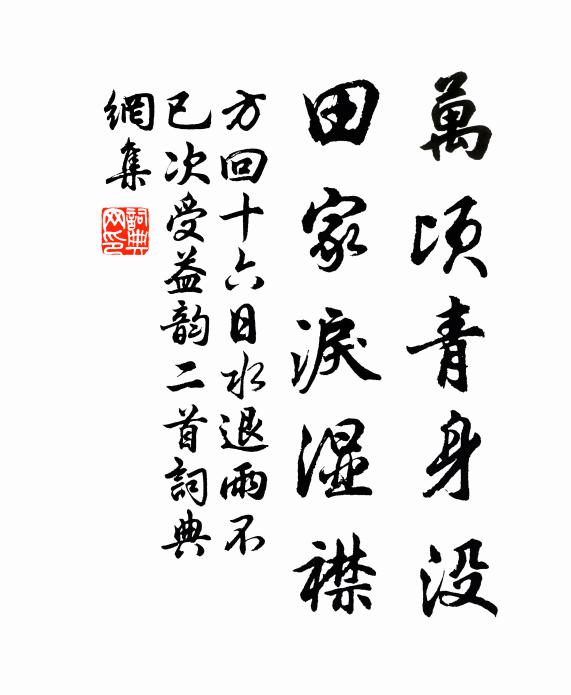 萬頃青身没
田家淚濕襟
方回十六日水退雨不
已次受益韵二首詞典
網集
詞典
网印